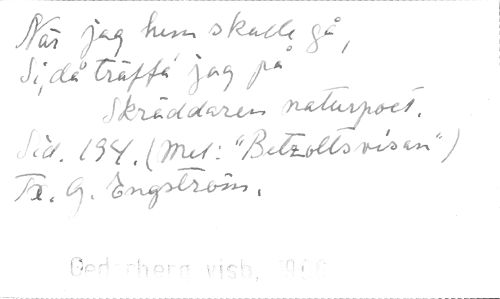 När jag hem skulle gå,
Si, då träffa' jag på
Skräddaren naturpoet.
Sid. 194. (Mel: "Betzoltsvisan")
Tr. G. Engström.
Cederberg visb,